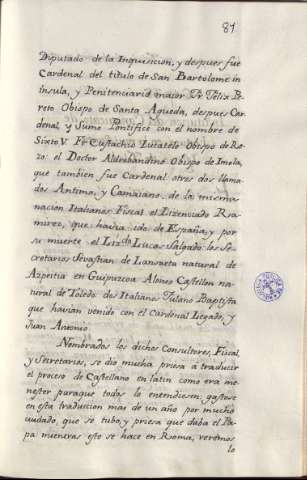 81
Diputado de la Inquisicion, y despues fue
Cardenal del titulo de San Bartolome in
insula, y Penitenciario maior Fr. Felix Pe-
reto Obispo de Santa Agueda, despues Car-
denal, y Sumo Pontifice con el nombre de
Sixto V. Fr Eustachio Lucatelo Obispo de Re-
zo: el Doctor Aldrobandino Obispo de Imola,
que tambien fue Cardenal otros dos llama-
dos Antima, y Camaiano de la misma
nacion Italiana: Fiscal el Lizenciado Ra-
mirez, que havia ido de España, y por
su muerte el Lizdo Lucas Salgado: los Se-
cretarios Sevastian de Lansueta natural de
Azpeitia en Guipuzcoa Alonso Castellon na-
tural de Toledo dos Italianos Julano Baptista
que havian venido con el Cardenal Legado, y
Juan Antonio.
Nombrados los dichos Consultores, Fiscal,
y Secretarios, se dio mucha priesa a traducir
el proceso de Castellano en latin como era me-
nester paraque todos lo entendiesen: gastose
en esta traduccion mas de un año por mucho
cuidado, que se tubo, y priesa que daba el Pa-
pa mientras esto se hace en Roma, veremos
lo